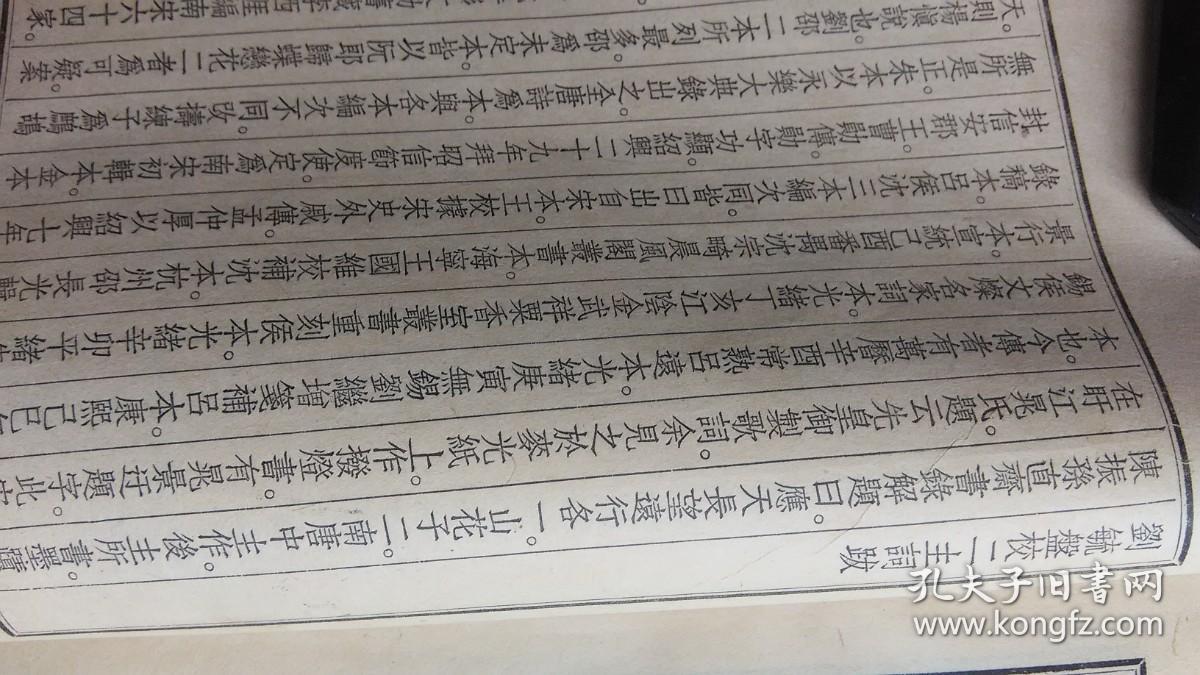 劉毓盤校二主詞跋
陳振孫直齋書錄解題曰。應天長望遠行各一。山花子二。南唐中主作。後主所書墨蹟。
在盱江晁氏。題云先皇御製歌詞。余見之於麥光紙上。作撥燈書。有晁景迂題字。此
本也。今傳者有萬曆辛酉常熟呂遠本。光緒庚寅無錫劉繼增箋補呂本。康熙己巳
錫侯文燦名家詞本。光緒丁亥江陰金武祥粟香室叢書重刻侯本。光緒辛卯平緒
景行本。宣統己酉番禺沈宗畸晨風閣叢書本。海寧王國維校補沈本。杭州邵長光輯
錄稿本。呂侯沈三本編次同。皆曰出自宋本。王校據宋史外戚傳。孟仲厚以紹興七年
封信安郡王。曹勛傳。勛字功顯。紹興二十九年拜昭信節度使。定為南宋初輯本。金本
無所是正。朱本以永樂大典錄出之全唐詩為本。與各本編次不同。改擣練子為鷓鴣
天。則楊慎說也。劉邵二本所刻最多。邵為未定本。皆以阮郎歸蝶戀花二者為可疑。案
編南宋六十四家。
孔夫子旧书网
www.kongfz.com